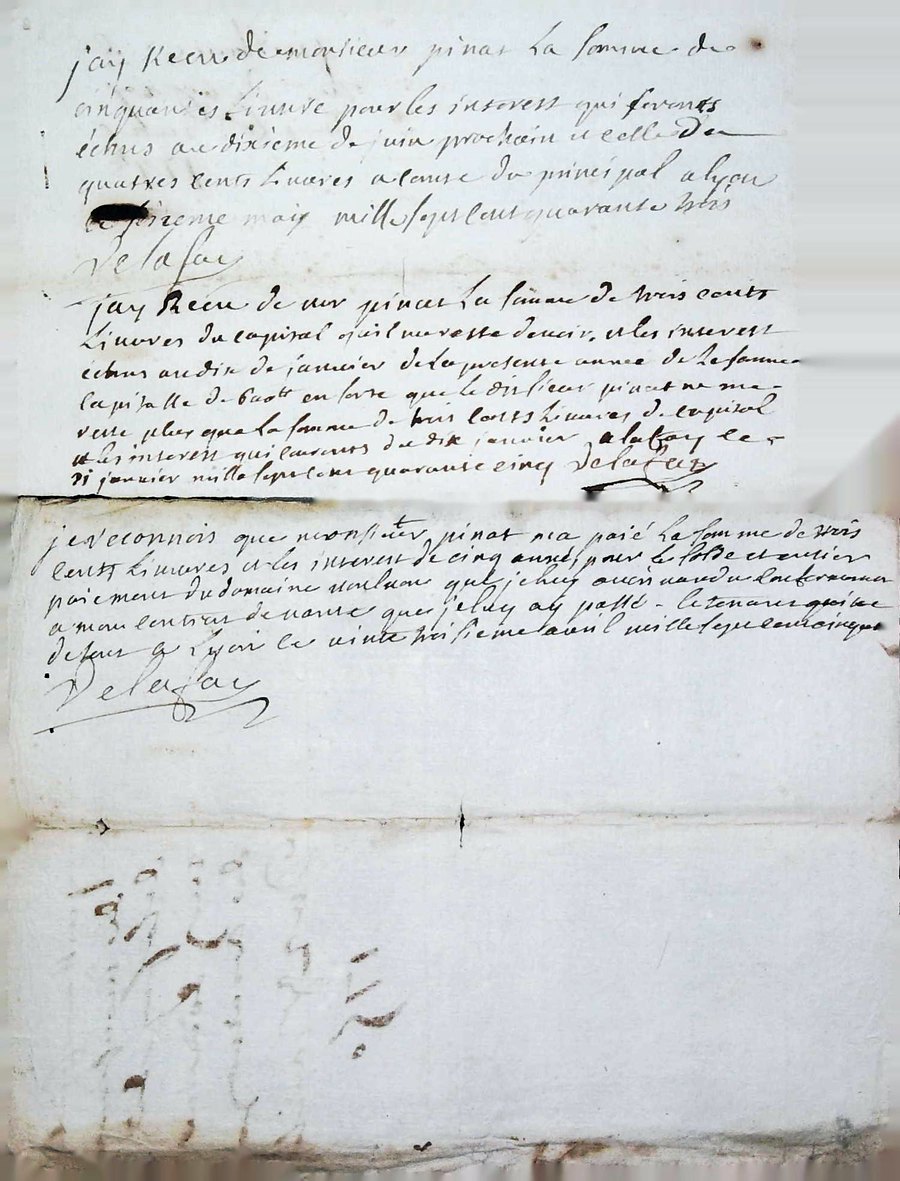 jaÿ Receu de monsieur pinat La somme de
cinquantes Liuure pour les interest qui seronts
échus au dixieme de juin prochain et celle De
quatres cents Liuures a conte du principal a lyon
le maix mille sept cent quarante trois
Delafay
jay Receu de mr pinat La somme de trois cents
Liuures du capital quil me reste deuoir, et les interest
echus au dix de janvier de la presente année de la somme
capitalle de en sorte que le dit sieur pinat ne me
reste plus que la somme de trois cents Liuures de capital
et les interest qui courents du dix janvier a lafay ce
21 janvier mille sept cent quarante cinq Delafay
je reconnois que monsieur pinat ma paié La somme de trois
cents Liuures et les interest de cinq année pour le solde et entier
paiement du domaine que je luy auoit vandu conformement
a mon contrat de vante que je luy ay passé le tenant quitte
de tout a Lyon le vints troisieme avril mille sept cent cinquante
Delafay